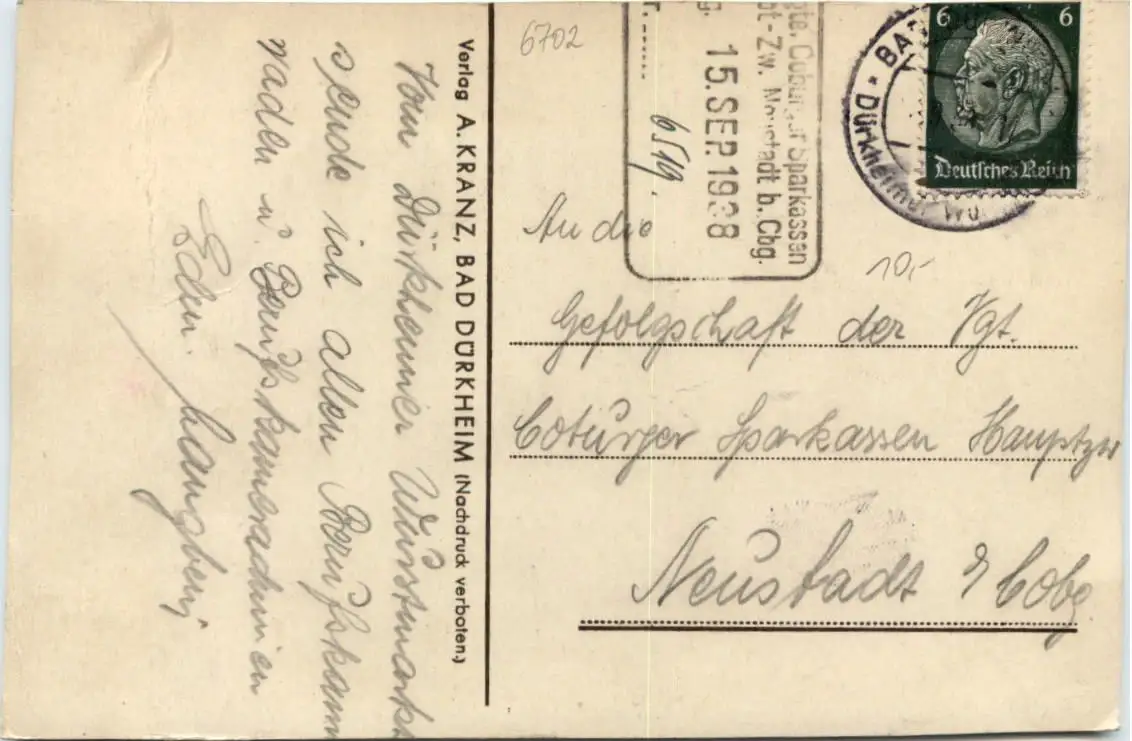 Vom Dürkheimer Wurstmarkt
sende ich allen Berufskame
raden u. Berufskameradinnen
Edm.
Verlag A. KRANZ, BAD DÜRKHEIM (Nachdruck verboten.)
6702
gte. Coburger Sparkassen
pt-Zw. Neustadt b. Cbg.
15. SEP. 1938
6519.
6 6
Deutsches Reich
BAD
Dürkheimer Wu
10,-
An die
Gefolgschaft der Vgt.
Coburger Sparkassen Hauptzw
Neustadt b/ Cobg